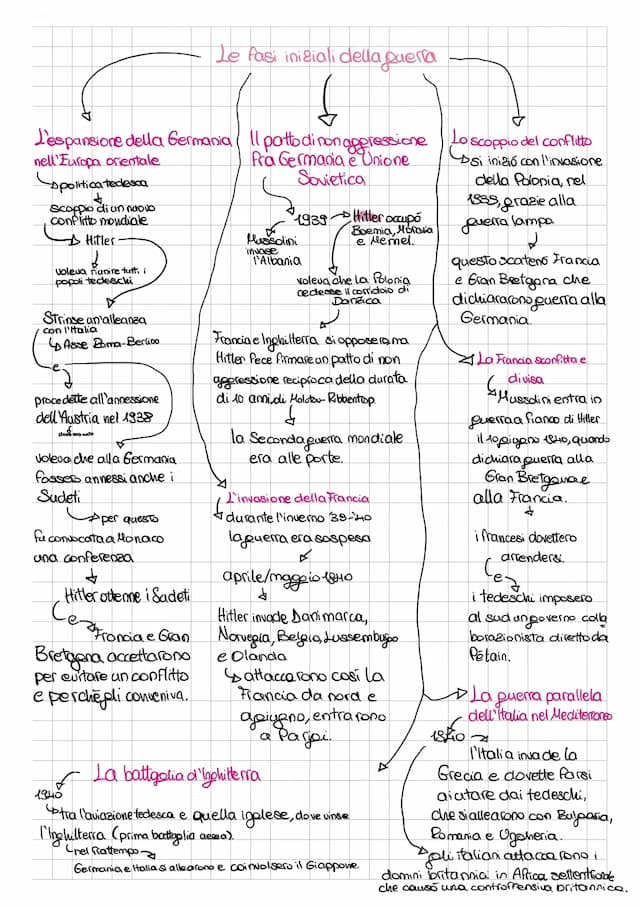 Le fasi iniziali della guerra
L'espansione della Germania
nell'Europa orientale
politica tedesca
scoppio di un nuovo
conflitto mondiale
Hitler
voleva riunire tutti i
popoli tedeschi
Strinse un'alleanza
con l'Italia
Asse Roma-Berlino
e
procedette all'annessione
dell'Austria nel 1938
voleva che alla Germania
fossero annessi anche i
Sudeti
per questo
fu convocata a Monaco
una conferenza
Hitler ottenne i Sudeti
e
Francia e Gran
Bretagna accettarono
per evitare un conflitto
e perchè gli conveniva.
Il patto di non aggressione
fra Germania e Unione
Sovietica
1939
Mussolini
invase
l'Albania
Hitler occupó
Boemia, Moravia
e Memel.
voleva che la Polonia
cedesse il corridoio di
Danzica
Francia e Inghilterra si opposero ma
Hitler fece firmare un patto di non
aggressione reciproca della durata
di 10 anni, di Molotov-Ribbentop.
la Seconda guerra mondiale
era alle porte.
L'invasione della Francia
durante l'inverno 39-'40
la guerra era sospesa
aprile/maggio 1940
Hitler invade Danimarca,
Norvegia, Belgio, Lussemburgo
e Olanda
attaccarono così la
Francia da nord e
a giugno, entrarono
a Parigi.
Lo scoppio del conflitto
si inizió con l'invasione
della Polonia, nel
1939, grazie alla
guerra lampo
questo scatenó Francia
e Gran Bretgana che
dichiararono guerra alla
Germania.
La Francia sconfitta e
divisa
Mussolini entra in
guerra a fianco di Hitler
il 10 giugno 1940, quando
dichiara guerra alla
Gran Bretgana e
alla Francia.
i francesi dovettero
arrendersi.
e
i tedeschi imposero
al sud un governo colla
borazionista diretto da
Pétain.
La guerra parallela
dell'Italia nel Mediterraneo
1940
l'Italia invade la
Grecia e dovette farsi
aiutare dai tedeschi,
che si allearono con Bulgaria,
Romania e Ugheria.
gli italiani attaccarono i
domini britannia in Africa settentrionale
che causó una controffensiva britannica.
La battgalia d'Inghilterra
1940
tra l'aviazione tedesca e quella inglese, dove vinse
l'Inghilterra (prima battaglia aerea).
nel frattempo
Germania e Italia si allearono e coinvolsero il Giappone.